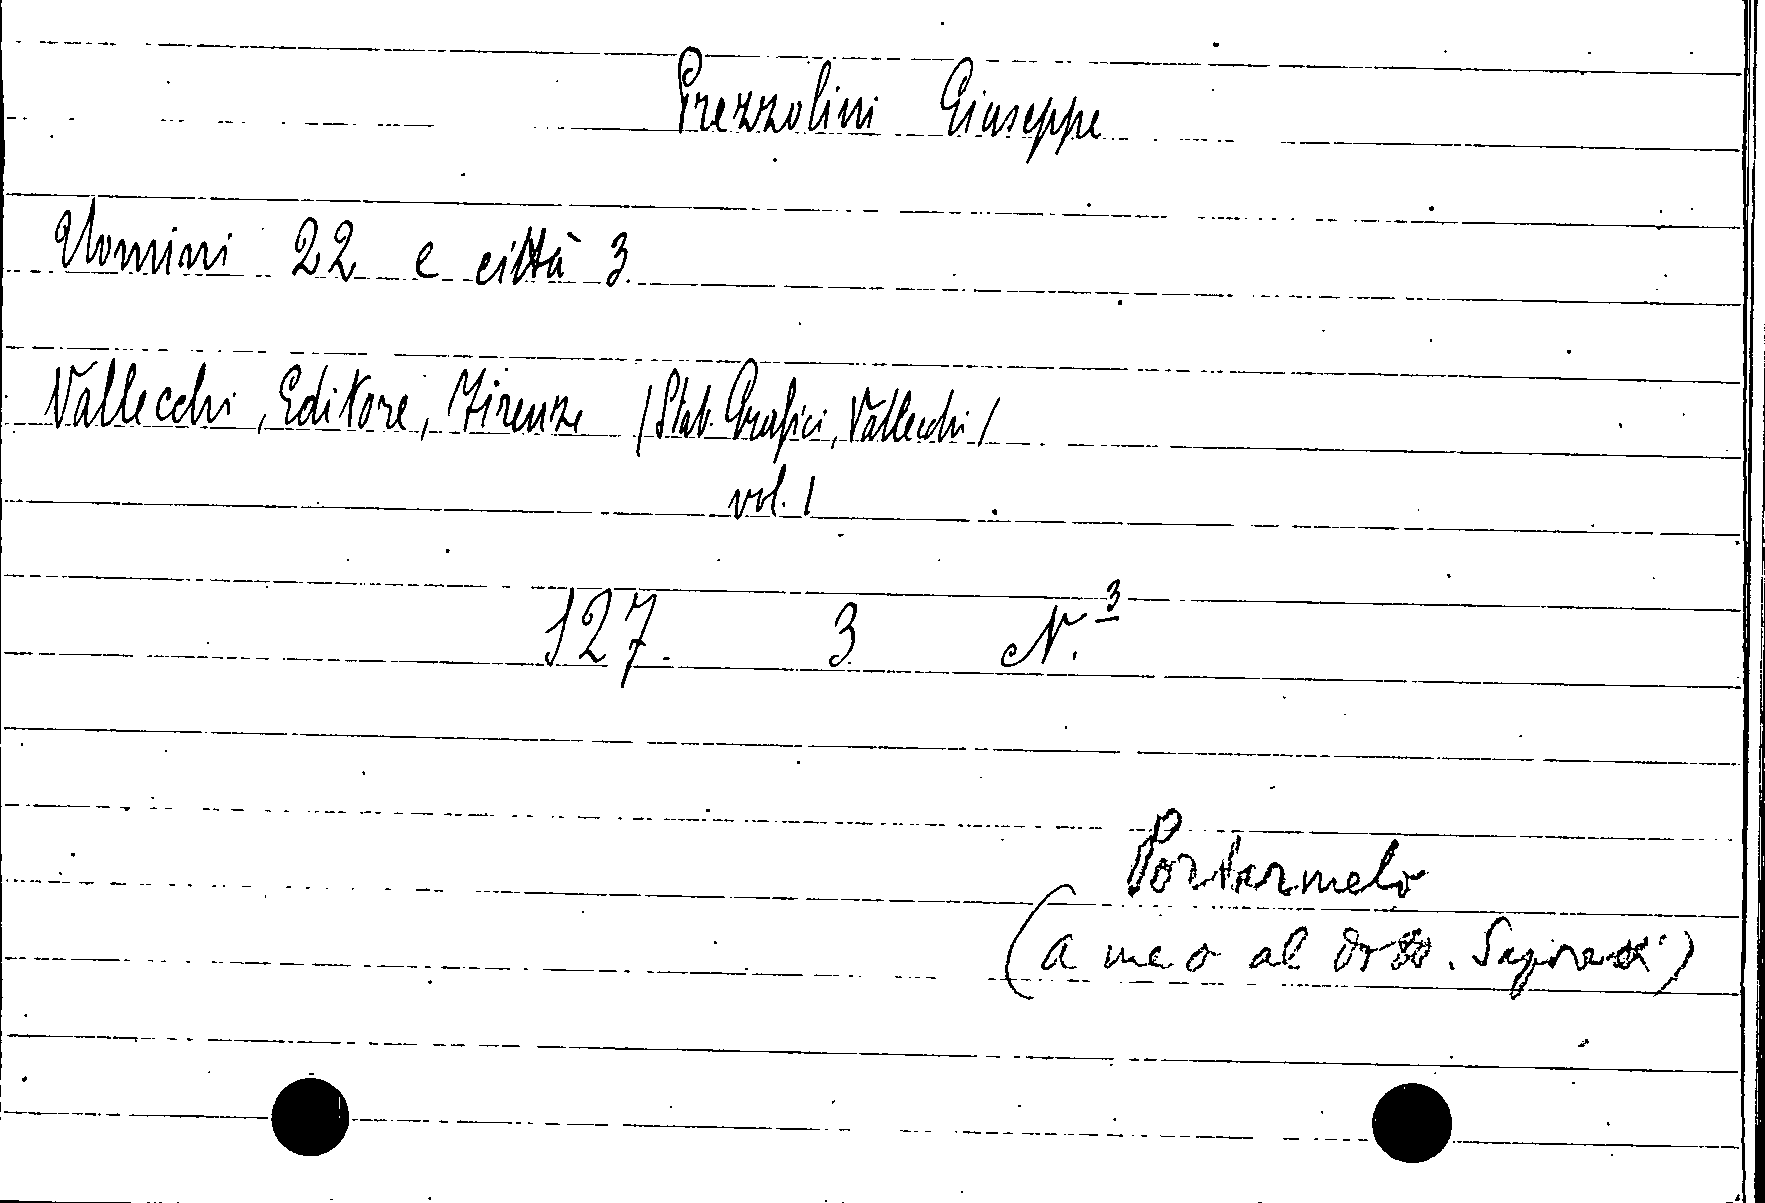 Prezzolini Giuseppe
Uomini 22 e città 3
Vallecchi, Editore, Firenze /Stab. Grafici, Vallecchi/
vol. 1
127. 3 N. 3
Portarmelo
(a me o al dott.